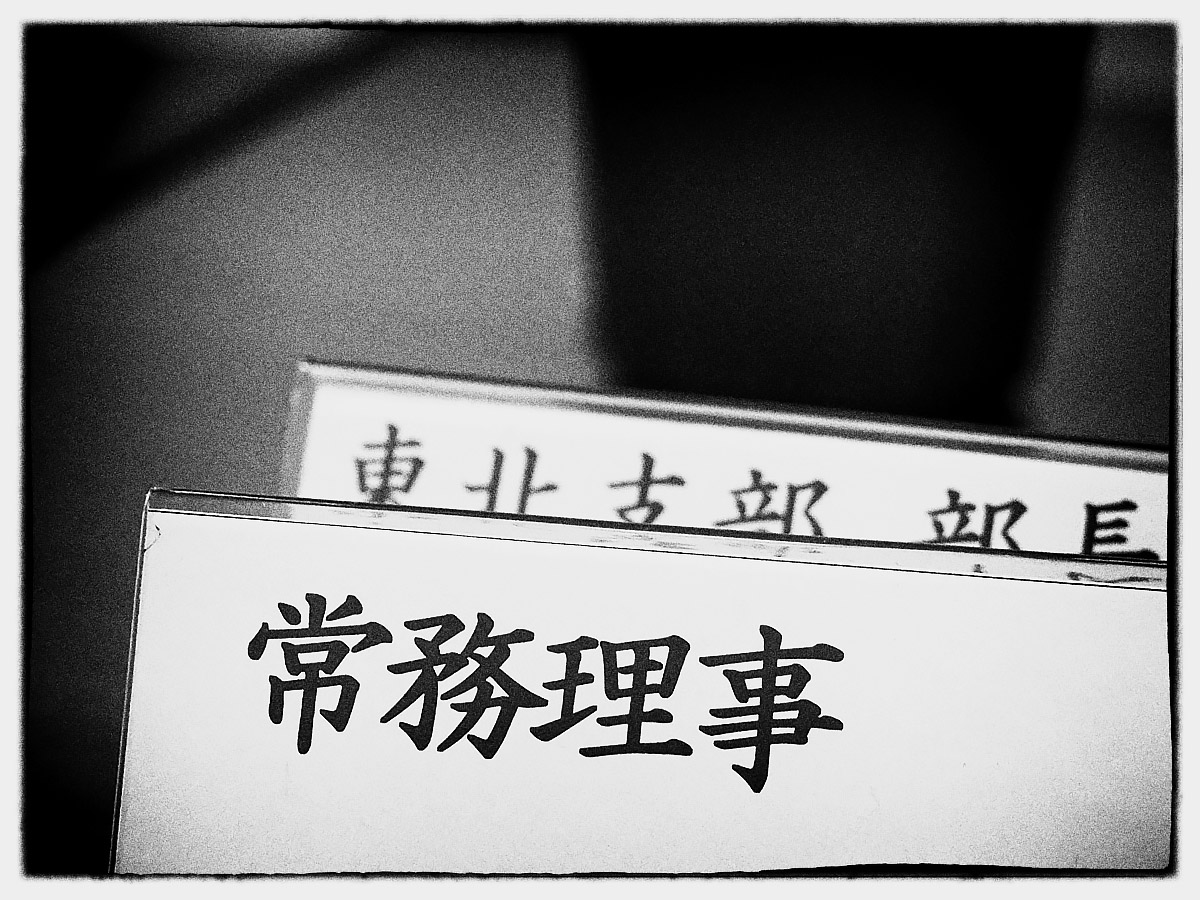 東北支部 部長
常務理事